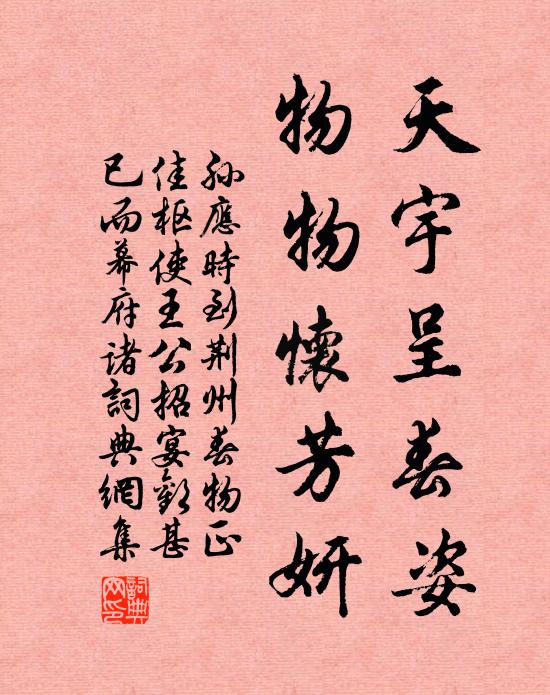 天宇呈春姿
物物懷芳妍
孫應時到荆州春物正
佳樞使王公招宴歡甚
已而幕府諸詞典網集
詞典网印